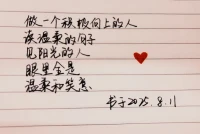 做一个积极向上的人
读温柔的句子
见阳光的人
眼里全是
温柔和笑意
书于2025.8.11